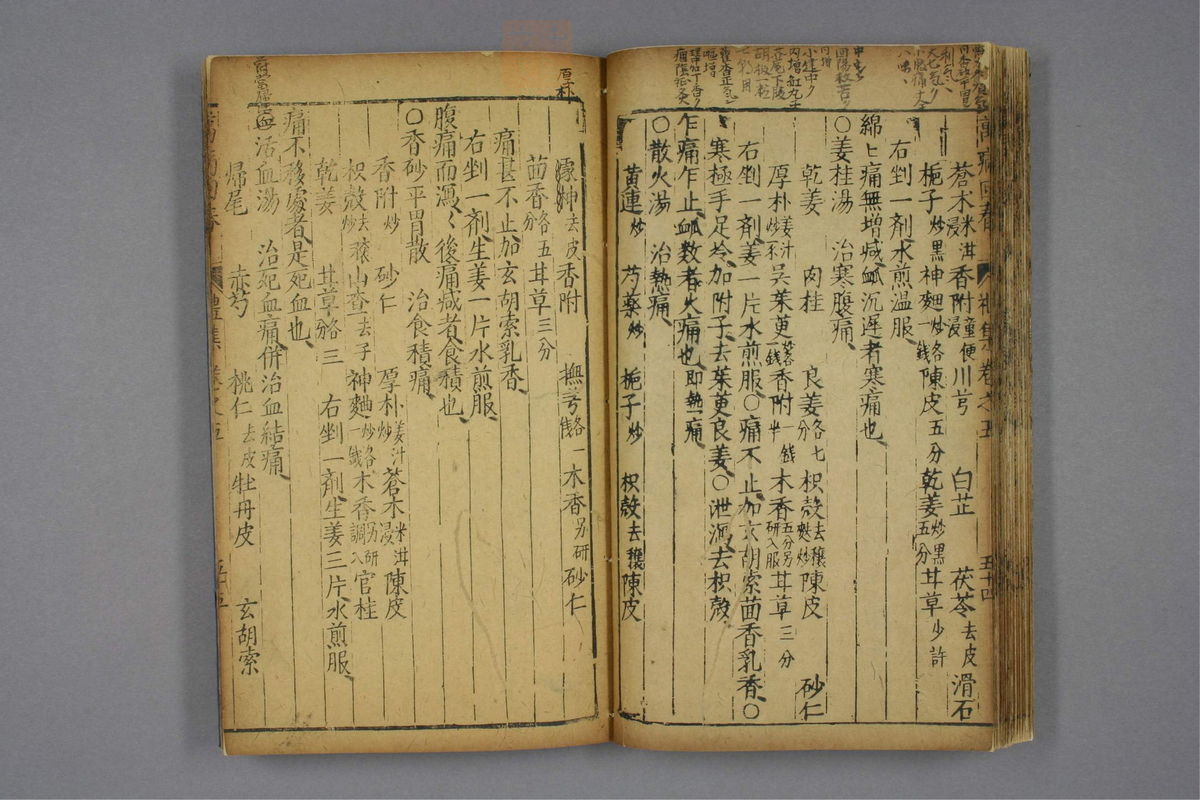 蒼朮米泔浸 香附童便浸 川芎 白芷 茯苓去皮 滑石
梔子炒黑 神麯炒各一錢 陳皮五分 乾姜炒黑五分 甘草少許
右剉一劑水煎温服
綿〻痛無增減脉沉遲者寒痛也
〇姜桂湯 治寒腹痛
乾姜 肉桂 良姜各七分 枳殼去穰麩炒 陳皮 砂仁
厚朴姜汁炒 吳茱萸 香附一錢半 木香五分另研入服 甘草三分
右剉一劑姜一片水煎服〇痛不止加玄胡索茴香乳香〇
寒極手足冷加附子去茱萸良姜〇泄瀉去枳殼
乍痛乍止脉数者火痛也即熱痛
〇散火湯 治熱痛
黄連炒 芍藥炒 梔子炒 枳殼去穰 陳皮
厚朴
去皮 香附 撫芎各一錢 木香另研 砂仁
茴香各五分 甘草三分
痛甚不止加玄胡索乳香
右剉一劑生姜一片水煎服
腹痛而瀉〻後痛减者食積也
〇香砂平胃散 治食積痛
香附炒 砂仁 厚朴姜汁炒 蒼朮米泔浸 陳皮
枳殼去穰炒 山查去子 神麯炒各一錢 木香另研調入 官桂
乾姜 甘草各三分 右剉一劑生姜三片水煎服
痛不移處者是死血也
活血湯 治死血痛併治血結痛
歸尾 赤芍 桃仁去皮 牡丹皮 玄胡索